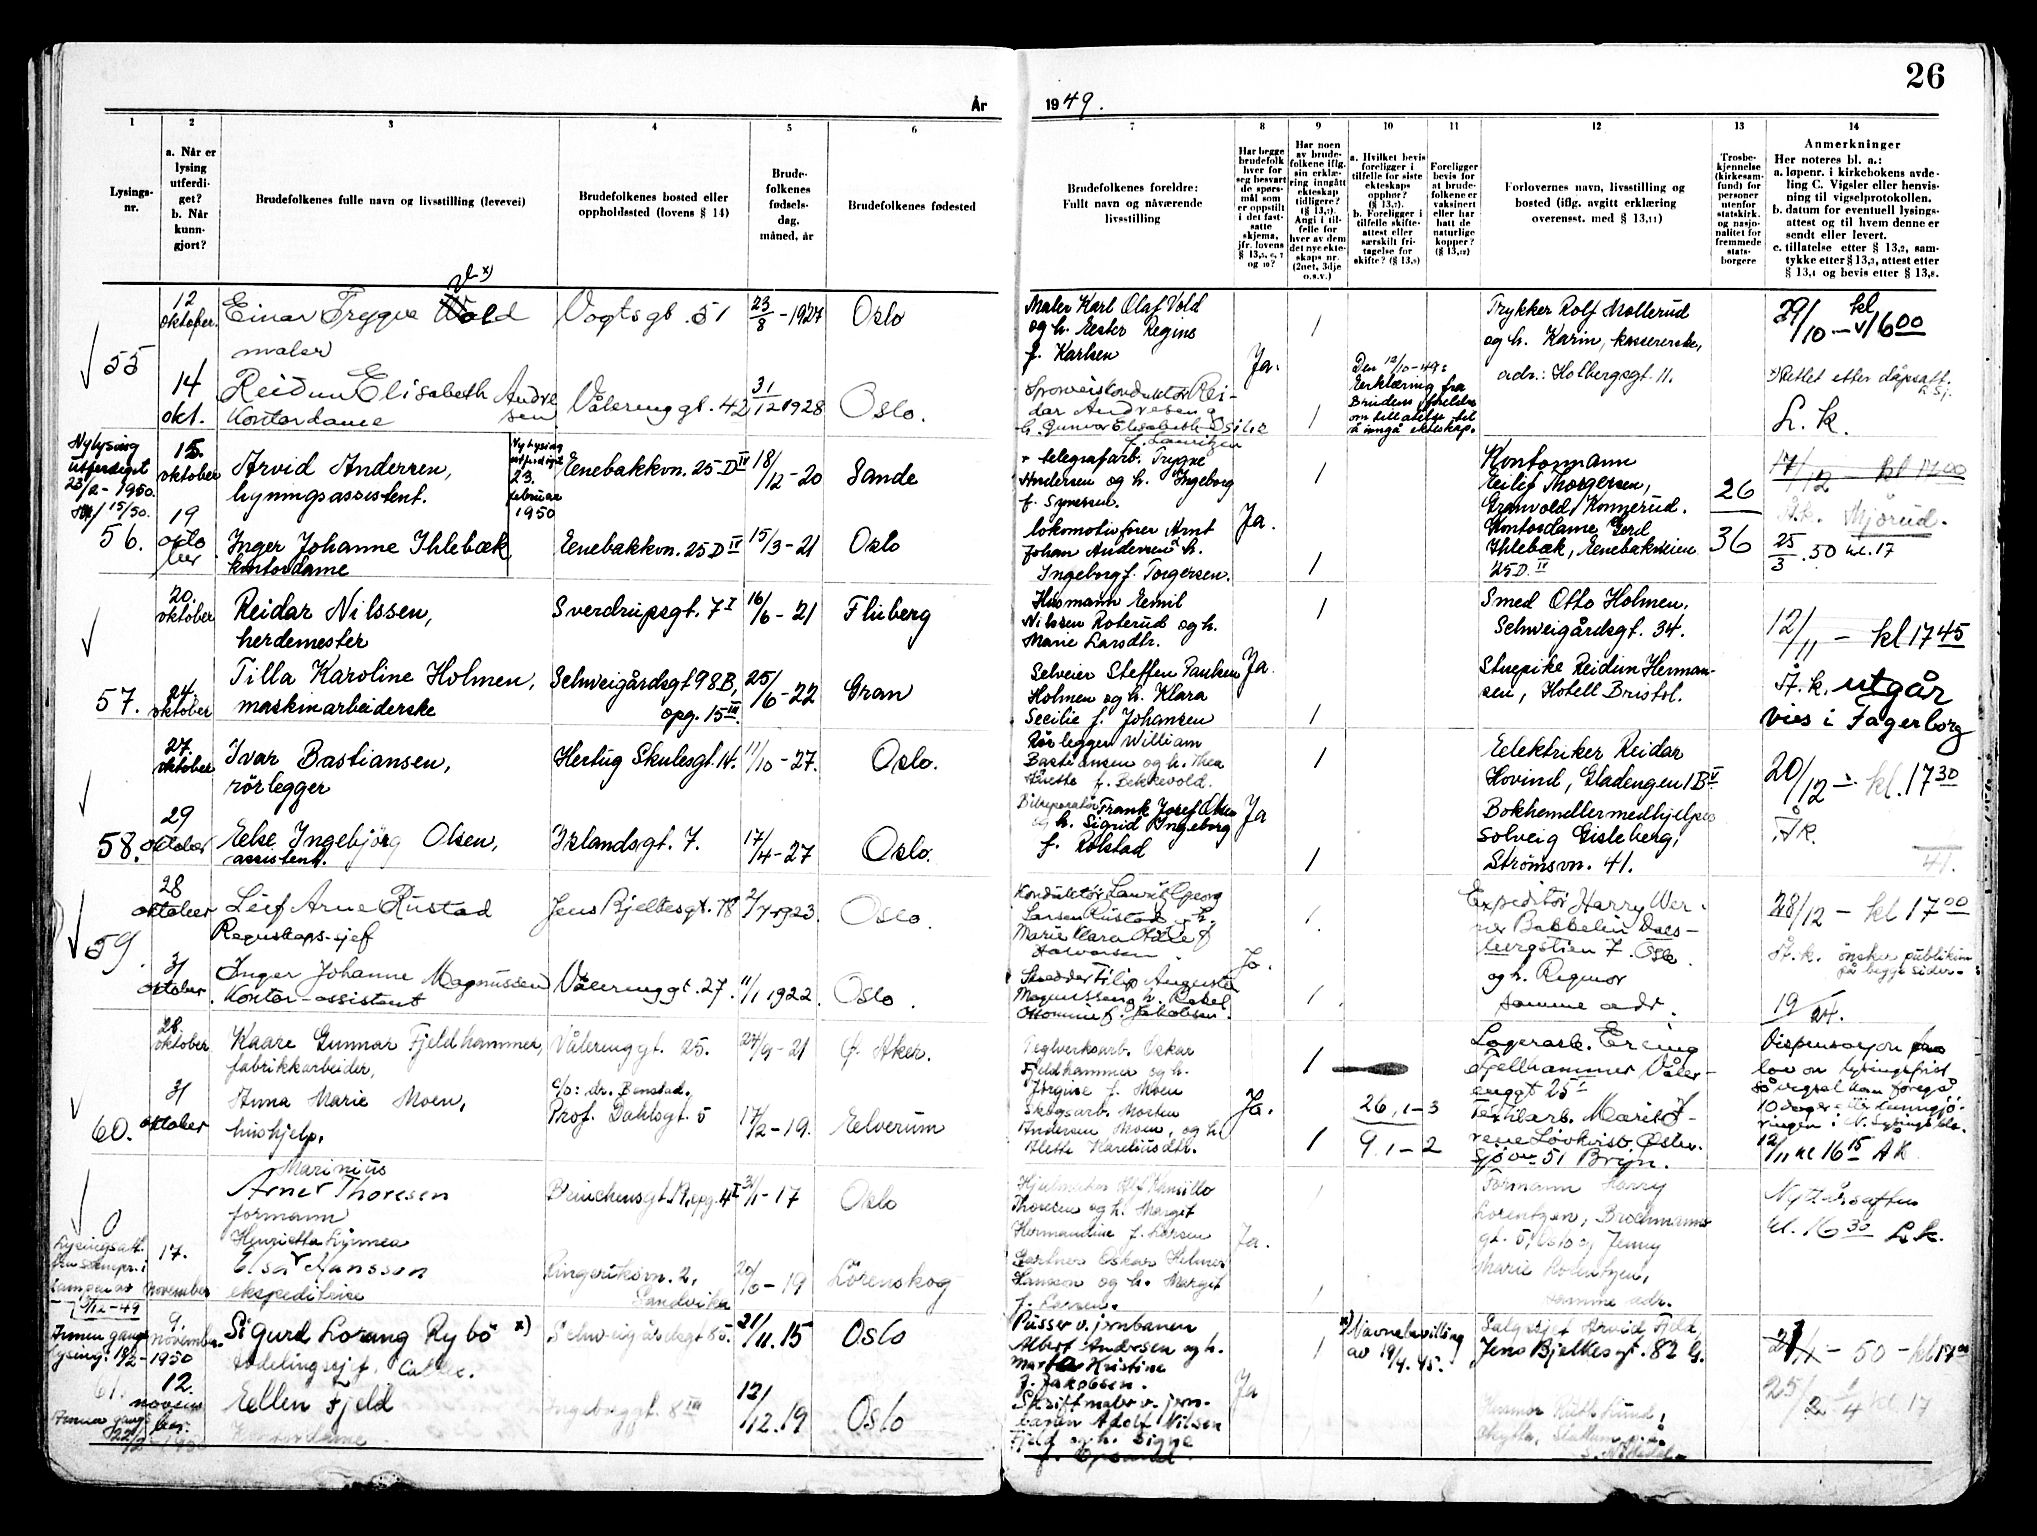 26
År
1949.
1
2
3
4
5
6
7
8
9
10
11
12
13
14
Lysings-
nr.
a. Når er
lysing
utferdi-
get?
b. Når
kunn-
gjort?
Brudefolkenes fulle navn og livsstilling (levevei)
Brudefolkenes bosted eller
oppholdssted (lovens § 14)
Brude-
folkenes
fødsels-
dag,
måned, år
Brudefolkenes fødested
Brudefolkenes foreldre:
Fullt navn og nåværende
livsstilling
Har begge
brudefolk
hver for
seg besvart
de spørs-
mål som
er oppstilt
i det fast-
satte
skjema,
jfr. lovens
§ 13,5, 6, 7
og 10?
Har noen
av brude-
folkene iflg.
sin erklæ-
ring inngått
ekteskap
tidligere?
Angi i til-
felle for
hver av dem
det nye ekte-
skaps nr.
(2net, 3dje
o.s.v.)
a. Hvilket bevis
foreligger i
tilfelle for siste
ekteskaps
ophør?
b. Foreligger i
tilfelle skifte-
attest eller
særskilt fri-
tagelse for
skifte? (§ 13,9)
Foreligger
bevis for
at brude-
folkene er
vaksinert
eller har
hatt de
naturlige
kopper?
(§ 13,12)
Forlovernes navn, livsstilling og
bosted (iflg. avgitt erklæring
overensst. med § 13,11)
Trosbe-
kjennelse
(kirkesam-
fund) for
personer
utenfor
statskirk.
og nasjo-
nalitet for
fremmede
stats-
borgere
Anmerkninger
Her noteres bl. a.:
a. løpenr. i kirkebokens avde-
ling C. Vigsler eller henvis-
ning til vigselprotokollen.
b. datum for eventuell lysings-
attest og til hvem denne er
sendt eller levert.
c. tillatelse etter § 13,2, sam-
tykke etter § 13,3, attest etter
§ 13,4 og bevis etter § 13,8.
55
12
oktober.
Einar Trygve Vold
maler
Vogtsgt. 51
23/8 - 1927
Oslo
Maler Karl Olaf Vold
og h. Ester Regine
f. Karlsen
1
Ja.
Trykker Rolf Møllerud
og h. Karin, kassererske,
adr.: Holbergsgt. 11.
29/10 - kl 16 00
Rettet etter dåpsatt.
14
okt.
Reidun Elisabeth Andre
sen
Kontordame
Vålerenggt. 42
31/12 1928
Oslo.
Sporveiskonduktør Rei-
dar Andresen og
h. Gunvor Elisabeth Osile
f. Lauritzen
1
Den 12/10-49:
Erklæring fra
Brudens foreldre
om tillatelse til
å inngå ekteskap.
L. k.
Ny lysing
utferdiget
23/2 - 1950.
15/50.
56.
15.
oktober
Arvid Andersen,
lysningsassistent.
Ny lysing
utferdiget
23.
februar
1950
Enebakkvn. 25 D IV
18/12 - 20
Sande
telegrafarb. Trygve
Andersen og h. Ingeborg
f. Syversen.
1
Ja.
Kontormann
Eilif Thorgersen,
Granvold, Konnerud.
26
17/12 kl 17 00
19
okto
ber
Inger Johanne Ihlebæk
kontordame
Enebakkvn. 25 D IV
15/3 - 21
Oslo
lokomotivfører Arnt
Johan Andersen h.
Ingeborg f. Torgersen.
1
Kontordame Gerd
Ihlebæk, Enebakveien
25 D. IV
36
25/3 . 50 kl. 17
57.
20.
oktober
Reidar Nilssen,
herdemester
Sverdrupsgt. 7 I
16/6 - 21
Fluberg
Husmann Emil
Nilssen Roterud og h.
Marie Larsdtr.
1
Ja.
Smed Otto Holmen,
Schweigårdsgt. 34.
12/11 - kl 17 45
24
oktober
Tilla Karoline Holmen,
maskinarbeiderske
Schweigårdsgt 98 B,
opg. 15 III.
25/6 - 22
Gran
Selveier Steffen Paulsen
Holmen og h. Klara
Secilie f. Johansen
1
Stuepike Reidun Herman-
sen, Hotell Bristol.
Å. k. utgår
vies i Fagerborg
58.
27.
oktober
Ivar Bastiansen,
rørlegger
Hertug Skulesgt. 14.
11/10 - 27.
Oslo.
Rørlegger William
Bastiansen og h. Thea
f. Bekkevold.
1
Ja
Elektriker Reidar
Hovind, Gladengen 1 B V
20/12 - kl. 17 30
29
october
Else Ingebjørg Olsen,
assistent.
Islandsgt. 7.
17/4 - 27
Oslo.
Bilreparatør Frank Josef Olsen
og h. Sigrid Ingeborg
f. Rolstad
1
Bokhandlermedhjelper
Solveig Gisleberg,
Strømsvn. 41.
Å k.
41.
59.
28
oktober
Leif Arne Rustad
Regnskapssjef
Jens Bjelkesgt. 78
2/7 1923.
Oslo
Konduktør Laurits Georg
Larsen Rustad og h.
Marie Klara f.
Halvorsen
1
Ja.
Expeditør Harry Wer-
ner Bakkelin Dals-
bergstien 7. Oslo.
og h. Regmor
samme adr.
28/12 - kl 17 00
Å. k. ønsker publikum
på begge sider.
31
oktober.
Inger Johanne Magnussen
Kontor-assistent
Vålerenggt. 27.
11/1 1922.
Oslo.
Skredder Filip August
Magnussen og h. Rakel
f. Jakobsen.
1
19/24.
60.
28
oktober
Kaare Gunnar Fjeldhammer,
fabrikkarbeider,
Vålerenggt. 25.
24/9 - 21
Ø. Aker.
Teglverksarb. Oskar
Fjeldhammer og h.
Jørgine f. Moen
1
Ja.
Lagerarb. Erling
Fjellhammer Våler-
enggt 25 I
Dispensasjon fra
lov om lysingsfrist
så vigsel kan foregå
10 dager etter kunngjø-
ringen i N. Lysingsbl.
31
oktober
Anna Marie Moen,
hushjelp.
c/o: dr. Benstad.
Prof. Dahlsgt. 5
17/2 - 19.
Elverum
Skogsarb. Morten
Andersen Moen, og h.
Alette Kareliusdtr.
1
26, 1-3
9, 1-2
Tekstilarb. Marit I-
rene Løvkvist Østen-
sjøvn 51 Bryn.
12/11 kl 16 15 Å K.
0
Marinius
Arne Thoresen
formann
Bruchensgt. opg. 4 I
31/1 - 17
Oslo
Thoresen og h. Margit
Hermandine f. Larsen
Ja.
Formann Harry
Lorentzen,
gt. 5, Oslo og Jenny
Marie Lorentzen,
samme adr.
Nyttårsaften
kl. 16 30 L. k.
Lysingsatt.
3/12 - 49
17.
november
Henrietta Linnea
Elsa Hansson
ekspeditrise
Ringeriksvn. 2,
Sandvika
Lørenskog
Gartner Oskar Hilmer
Hansson og h. Margit
f. Larsen.
61.
Annen gangs
lysing: 18/2 - 1950
9.
november
Sigurd Lorang Rybö x)
avdelingssjef
Schweigårdsgt 85.
21/11. 15
Oslo
Pusser v. jernbanen
Albert Andersen og h.
Marta Kristine
f. Jakobsen.
1
Ja
x) Navnebevilling
av 19/4. 45.
Salgssjef Arvid Fjeld
Jens Bjelkesgt. 82 G.
- 50 - kl 17 00
12.
novem
ber.
Ellen Fjeld
Kontordame
Ingeborggt. 8 III
12/12. 19
Oslo
Skriftmaler v. jern-
banen Adolf Nilsen
Fjeld og h. Signe
f. Opsand.
25/2 kl. 17